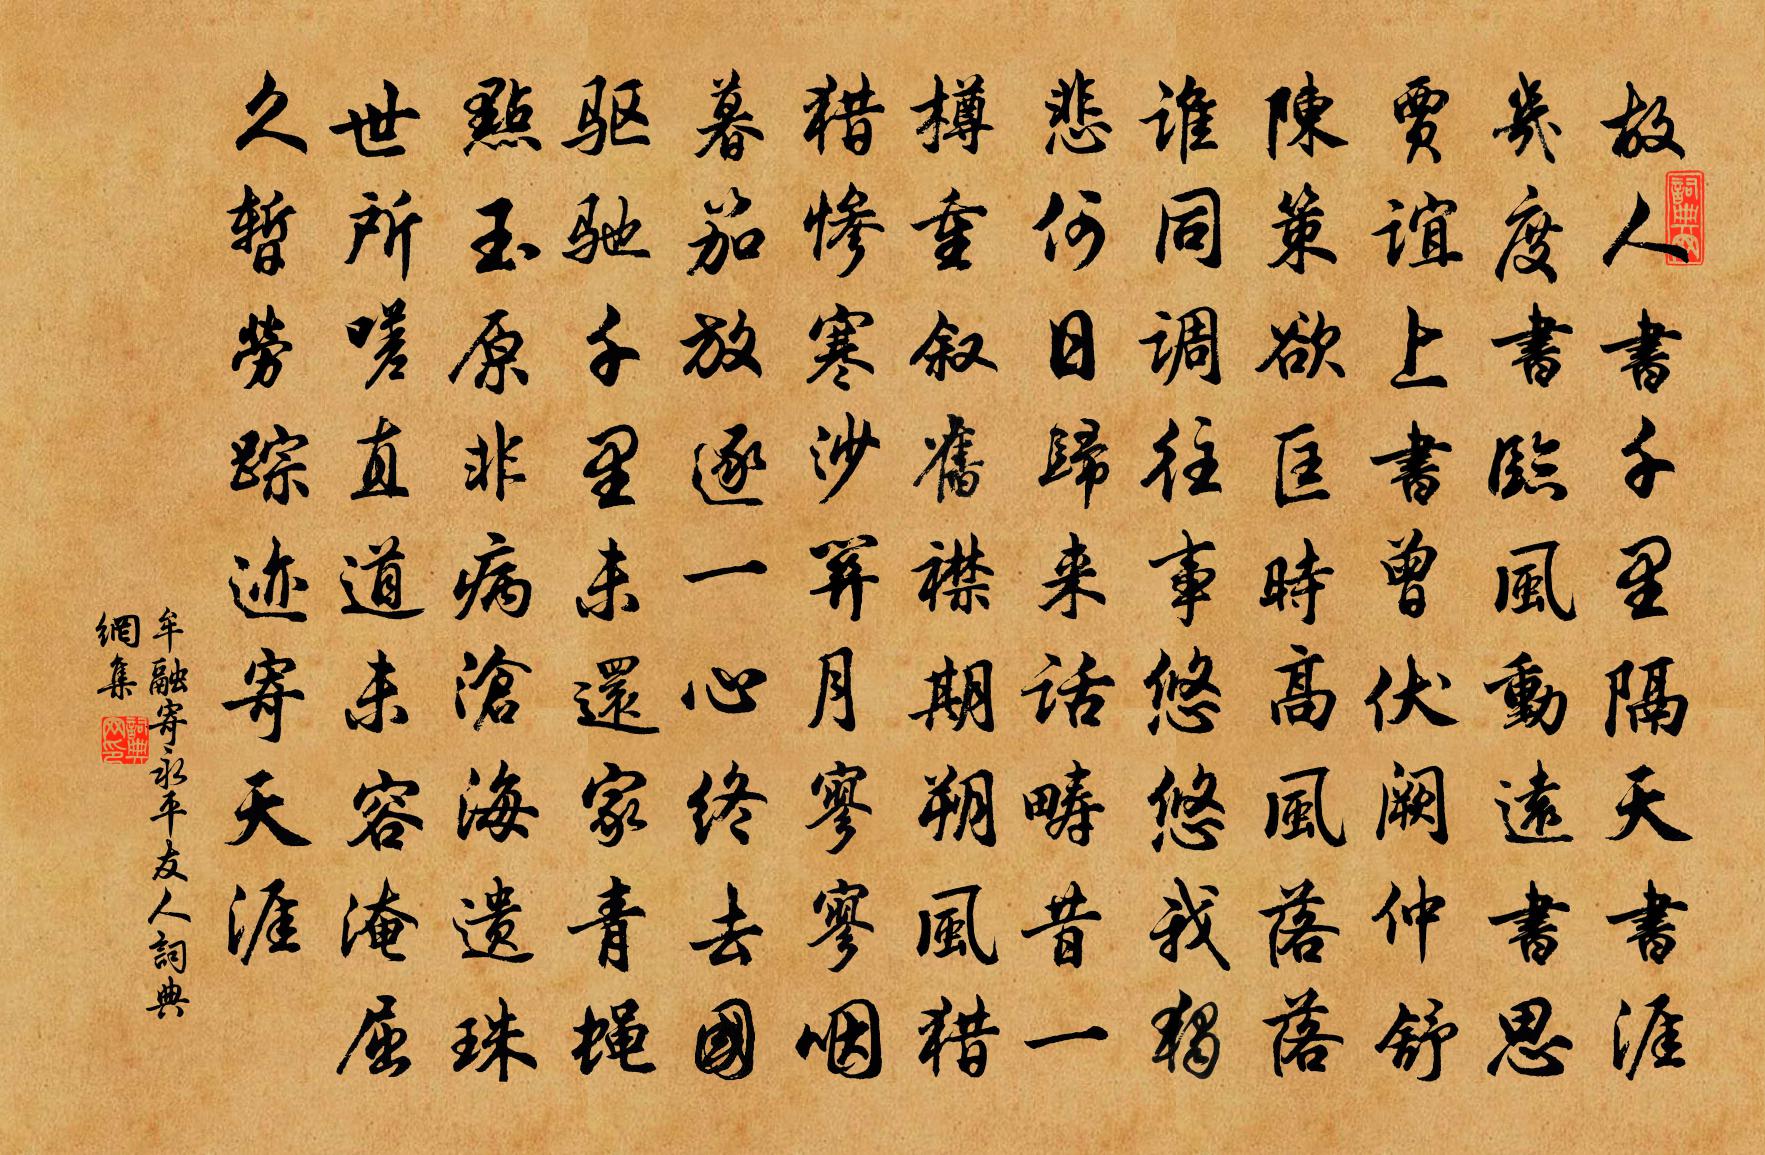 故人書千里隔天書涯
幾度書臨風動遠書思
賈誼上書曾伏闕仲舒
陳策欲匡時高風落落
谁同调往事悠悠我獨
悲何日歸来话疇昔一
樽重叙舊襟期朔風猎
猎惨寒沙関月寥寥咽
暮笳放逐一心终去國
驱驰千里未還家青蝇
點玉原非病滄海遗珠
世所嗟直道未容淹屈
久暫勞踪迹寄天涯
牟融寄永平友人詞典
網集
詞典网
詞典网印